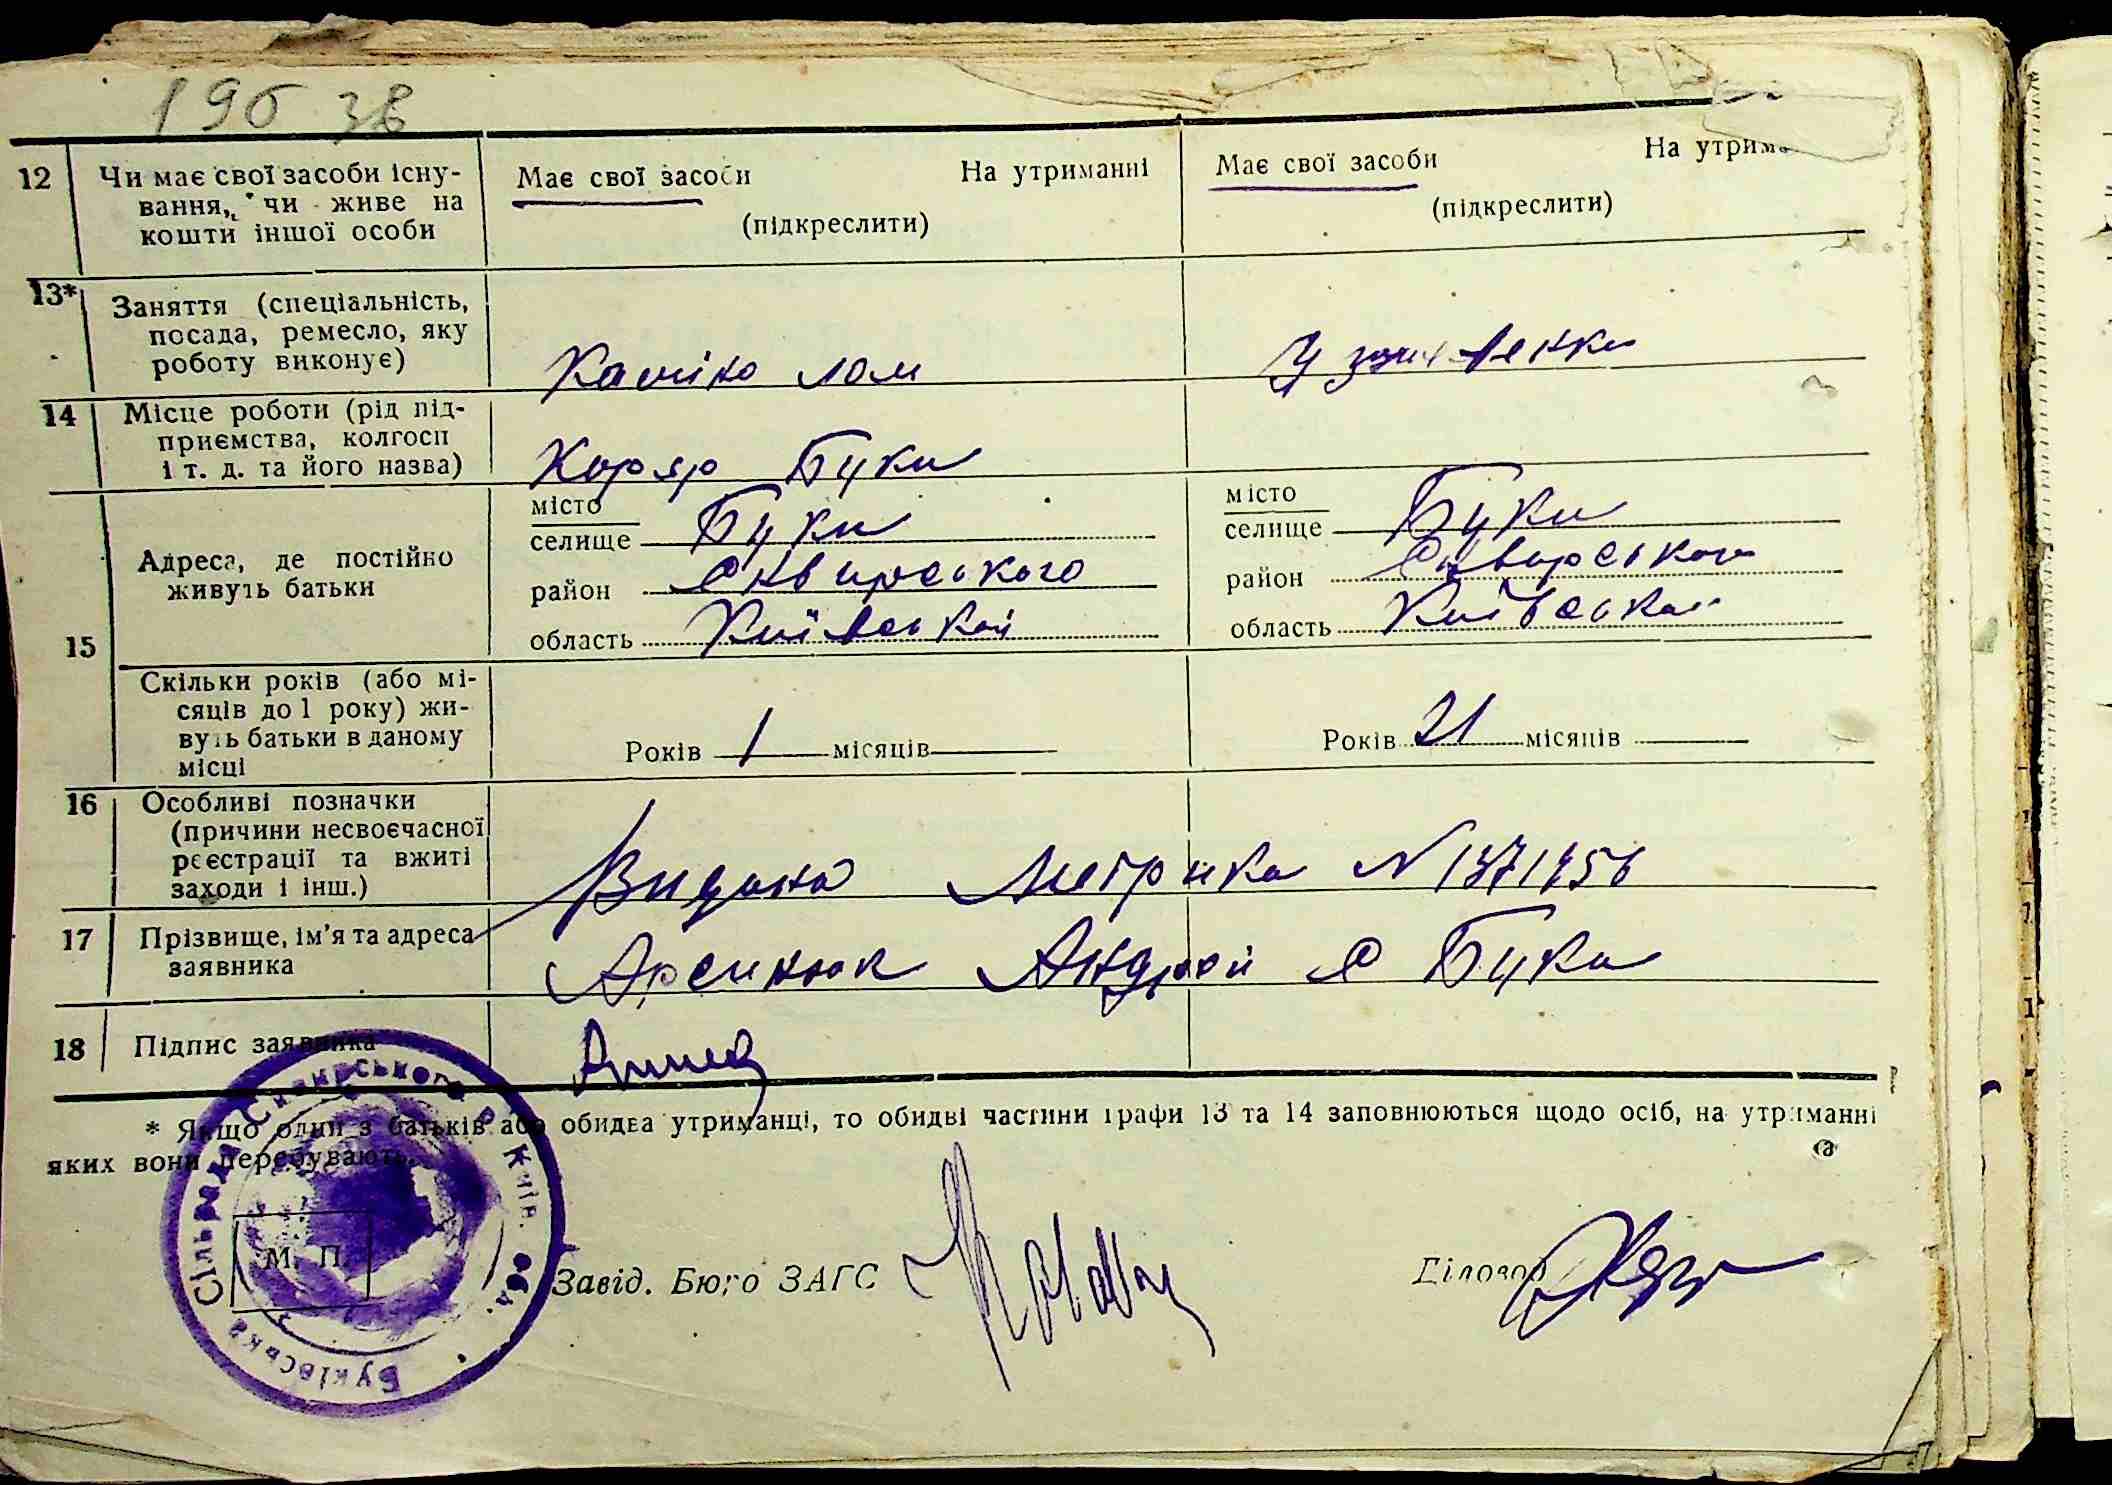 196 зв
12 Чи має свої засоби існу- Має свої засоби На утриманні Має свої засоби На утрима
вання, чи живе на (підкреслити) (підкреслити)
кошти іншої особи
13* Заняття (спеціальність,
посада, ремесло, яку
роботу виконує) Каміно лом У
14 Місце роботи (рід під-
приємства, колгосп
і т. д. та його назва) Карєр Буки
15 Адреса, де постійно
живуть батьки
місто місто
селище Буки селище Буки
район Сквирського район Сквирського
область Київської область Київської
Скільки років (або мі-
сяців до 1 року) жи-
вуть батьки в даному
місці Років 1 місяців Років 21 місяців
16 Особливі позначки
(причини несвоєчасної
реєстрації та вжиті
заходи і інш.) Видана Метрика N 1371456
17 Прізвище, ім'я та адреса
заявника Арсинюк Андрій с Буки
18 Підпис заявника
* Якщо один з батьків або обидва утриманці, то обидві частини графи 13 та 14 заповнюються щодо осіб, на утриманні
яких вони перебувають.
М. П.
Завід. Бюро ЗАГС Діловод
Буківська Сільрада Сквирського р. Київ. обл.